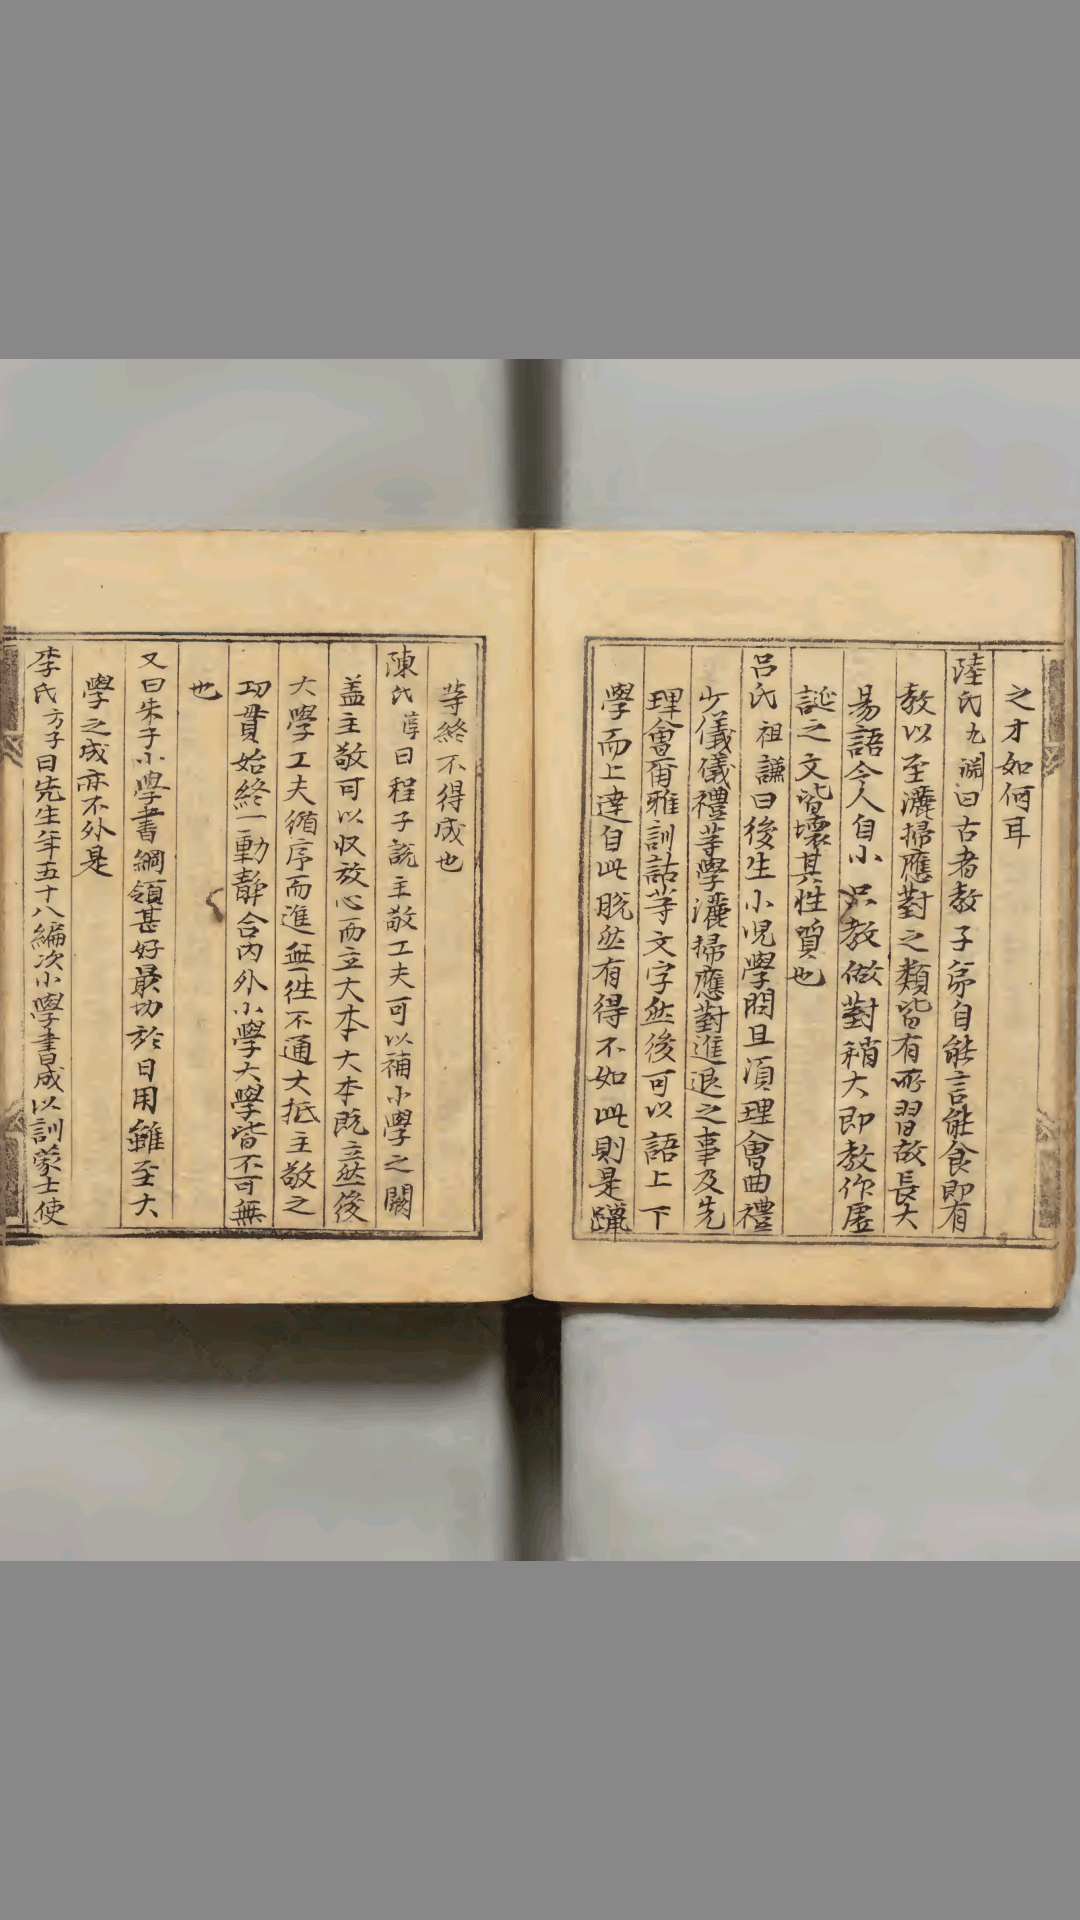 之才如何耳
陸氏九淵曰古者教子弟自能言能食即有
教以至灑掃應對之類皆有所習故長大
易語今人自小只教做對稍大即教作虛
誕之文皆壞其性質也
呂氏祖謙曰後生小児學問且湏理會曲禮
少儀儀禮等學灑掃應對進退之事及先
理會爾雅訓詁等文字然後可以語上下
學而上達自此脫然有得不如此則是躐
等終不得成也
陳氏淳曰程子說主敬工夫可以補小學之闕
盖主敬可以収放心而立大本大本既立然後
大學工夫循序而進無徃不通大抵主敬之
功貫始終一動靜合內外小學大學皆不可無
也
又曰朱子小學書綱領甚好最切於日用雖至大
學之成亦不外是
李氏方子曰先生年五十八編次小學書成以訓蒙士使